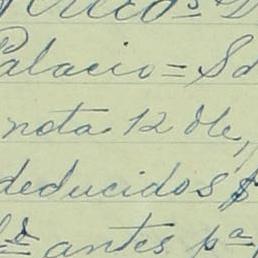 Palacio = Sd
nota 12 dle,
deducidos $
antes pª